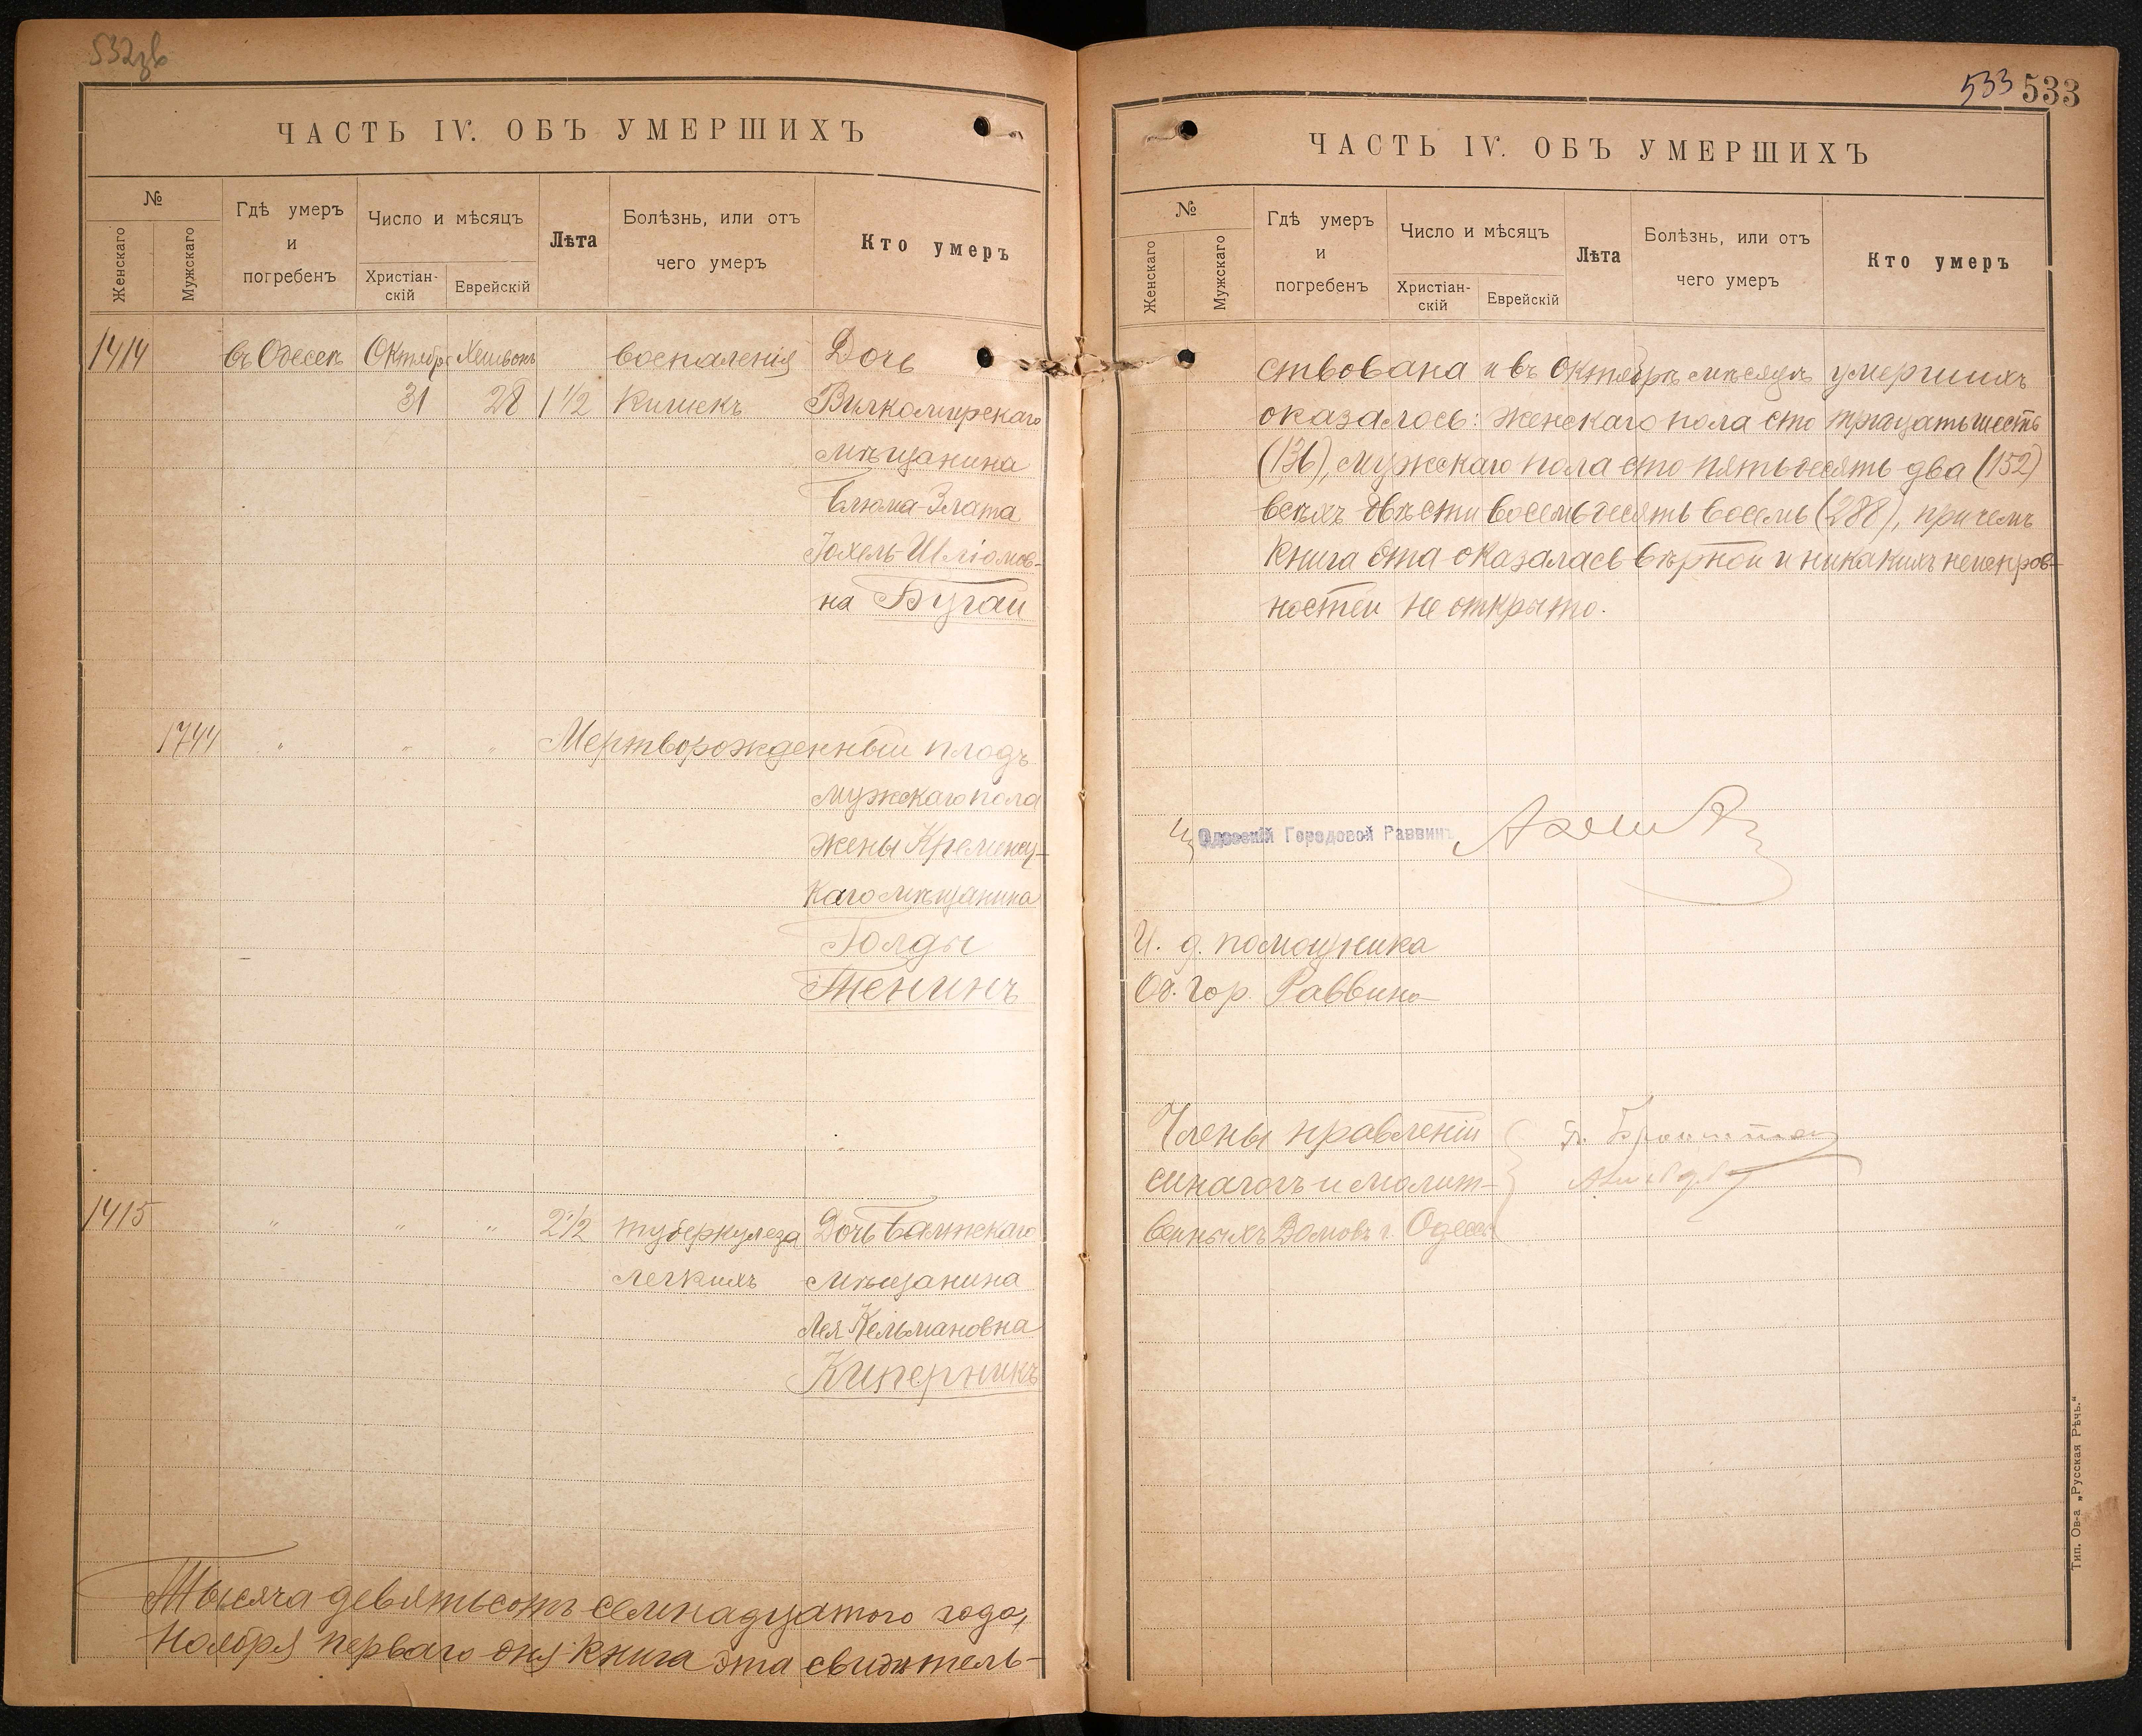 532
ЧАСТЬ IV. ОБЪ УМЕРШИХЪ
№
Женскаго
Мужскаго
Гдѣ умеръ
и
погребенъ
Число и мѣсяцъ
Христіан-
скій
Еврейскій
Лѣта
Болѣзнь, или отъ
чего умеръ
Кто умеръ
1414 въ Одессѣ Октября Хешвонъ воспаленія Дочь
31 28 1 1/2 кишекъ Вилкомирскаго
мѣщанина
Блюма-Злата
Іохель-Шліомов-
на Бугай
1744 " " " Мертворожденный плодъ
мужскаго пола
жены Кременчу-
каго мѣщанина
Голды
Тенинъ
1415 " " " 2 1/2 туберкулеза Дочь Балтскаго
легкихъ мѣщанина
Лея Кельмановна
Киперникъ
Тысяча девятьсотъ семнадцатого года,
ноября перваго дня книга эта свидѣтель-
533 533
ЧАСТЬ IV. ОБЪ УМЕРШИХЪ
№
Женскаго
Мужскаго
Гдѣ умеръ
и
погребенъ
Число и мѣсяцъ
Христіан-
скій
Еврейскій
Лѣта
Болѣзнь, или отъ
чего умеръ
Кто умеръ
ствована и въ Октябрѣ мѣсяцѣ умершихъ
оказалось: женскаго пола сто тридцать шесть
(136), мужскаго пола сто пятьдесятъ два (152)
всѣхъ двѣсти восемьдесятъ восемь (288), причемъ
книга эта оказалась вѣрной и никакихъ неисправ-
ностей не открыто.
Одесскій Городовой Раввинъ
И. д. помощника
Од. Гор. Раввина
Члены правленій
синагогъ и молит-
венныхъ Домовъ г. Одессы
Тип. Ов-а „Русская Рѣчь.“